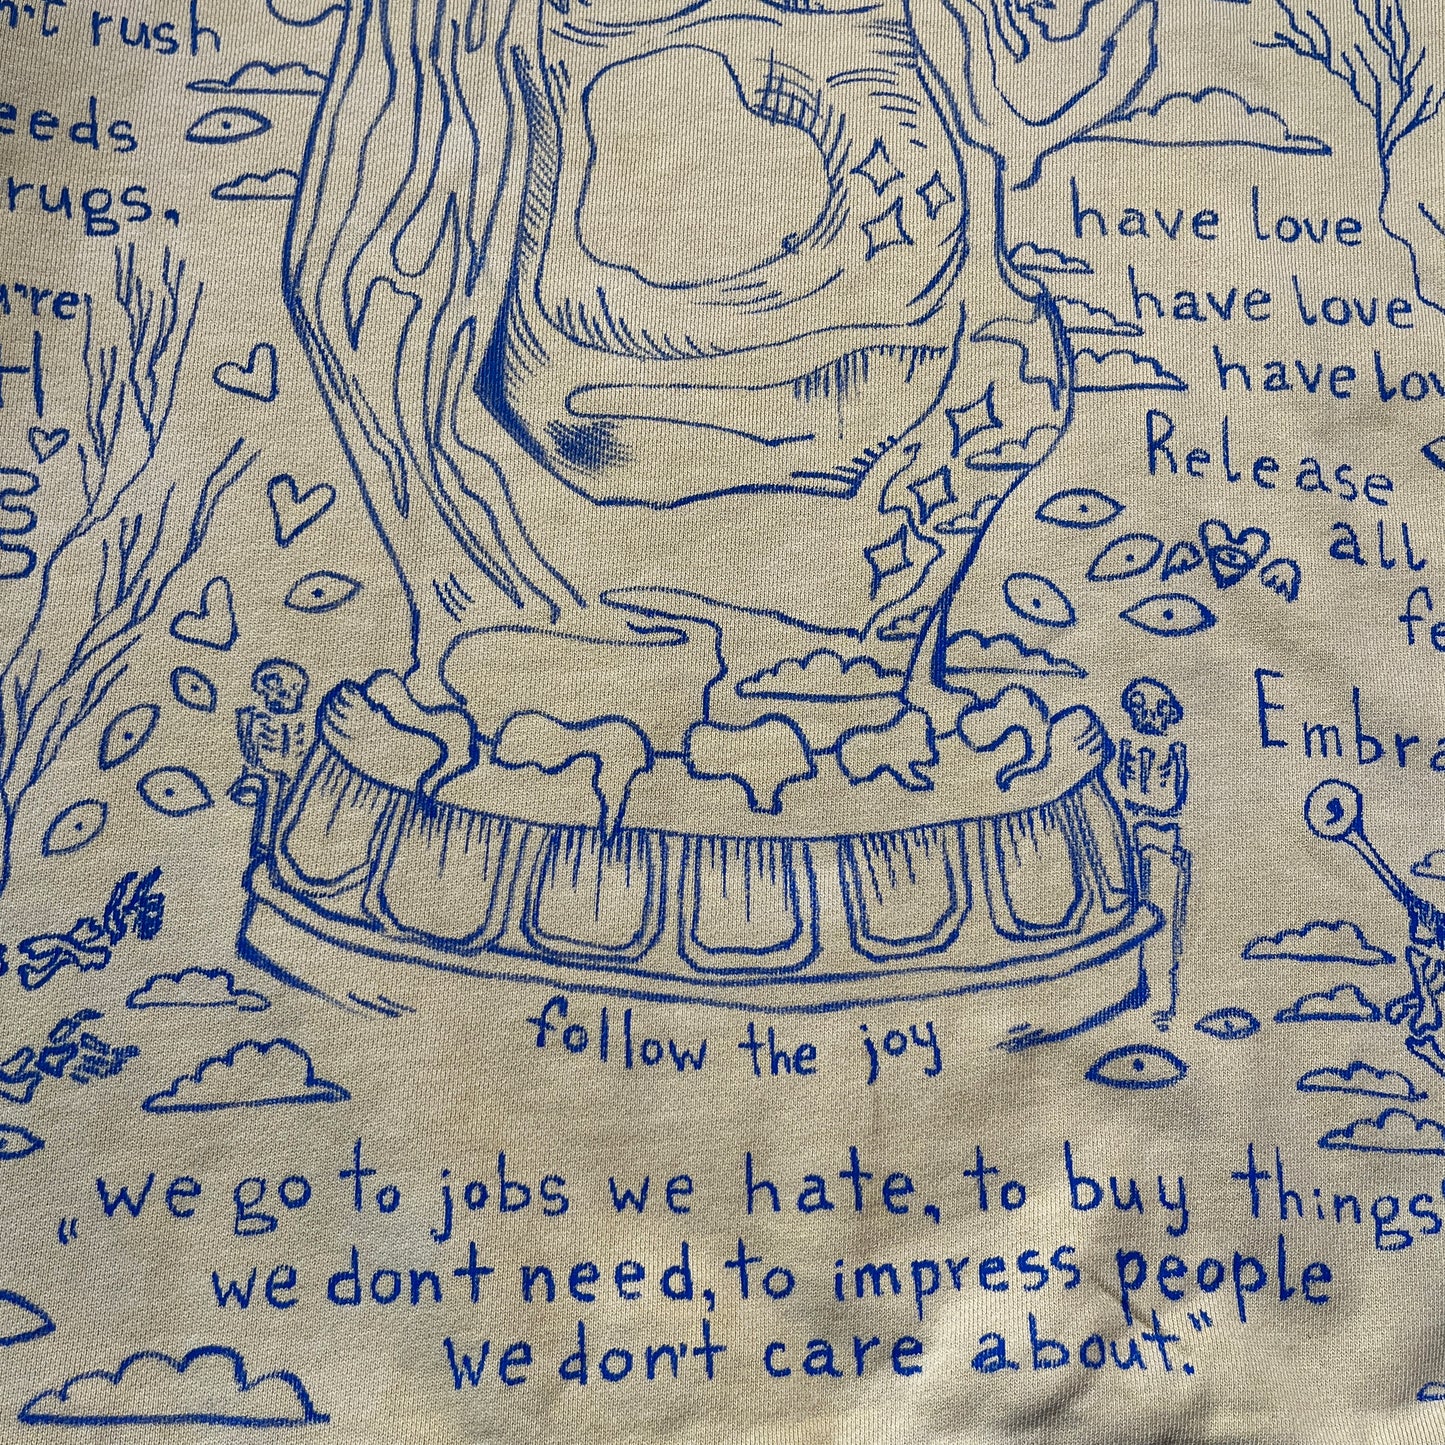 n't rush
eeds
rugs,
u're
H
have love
have love
have lov
Release
all
fe
Embra
follow the joy
„we go to jobs we hate, to buy things
we don't need, to impress people
we don't care about."